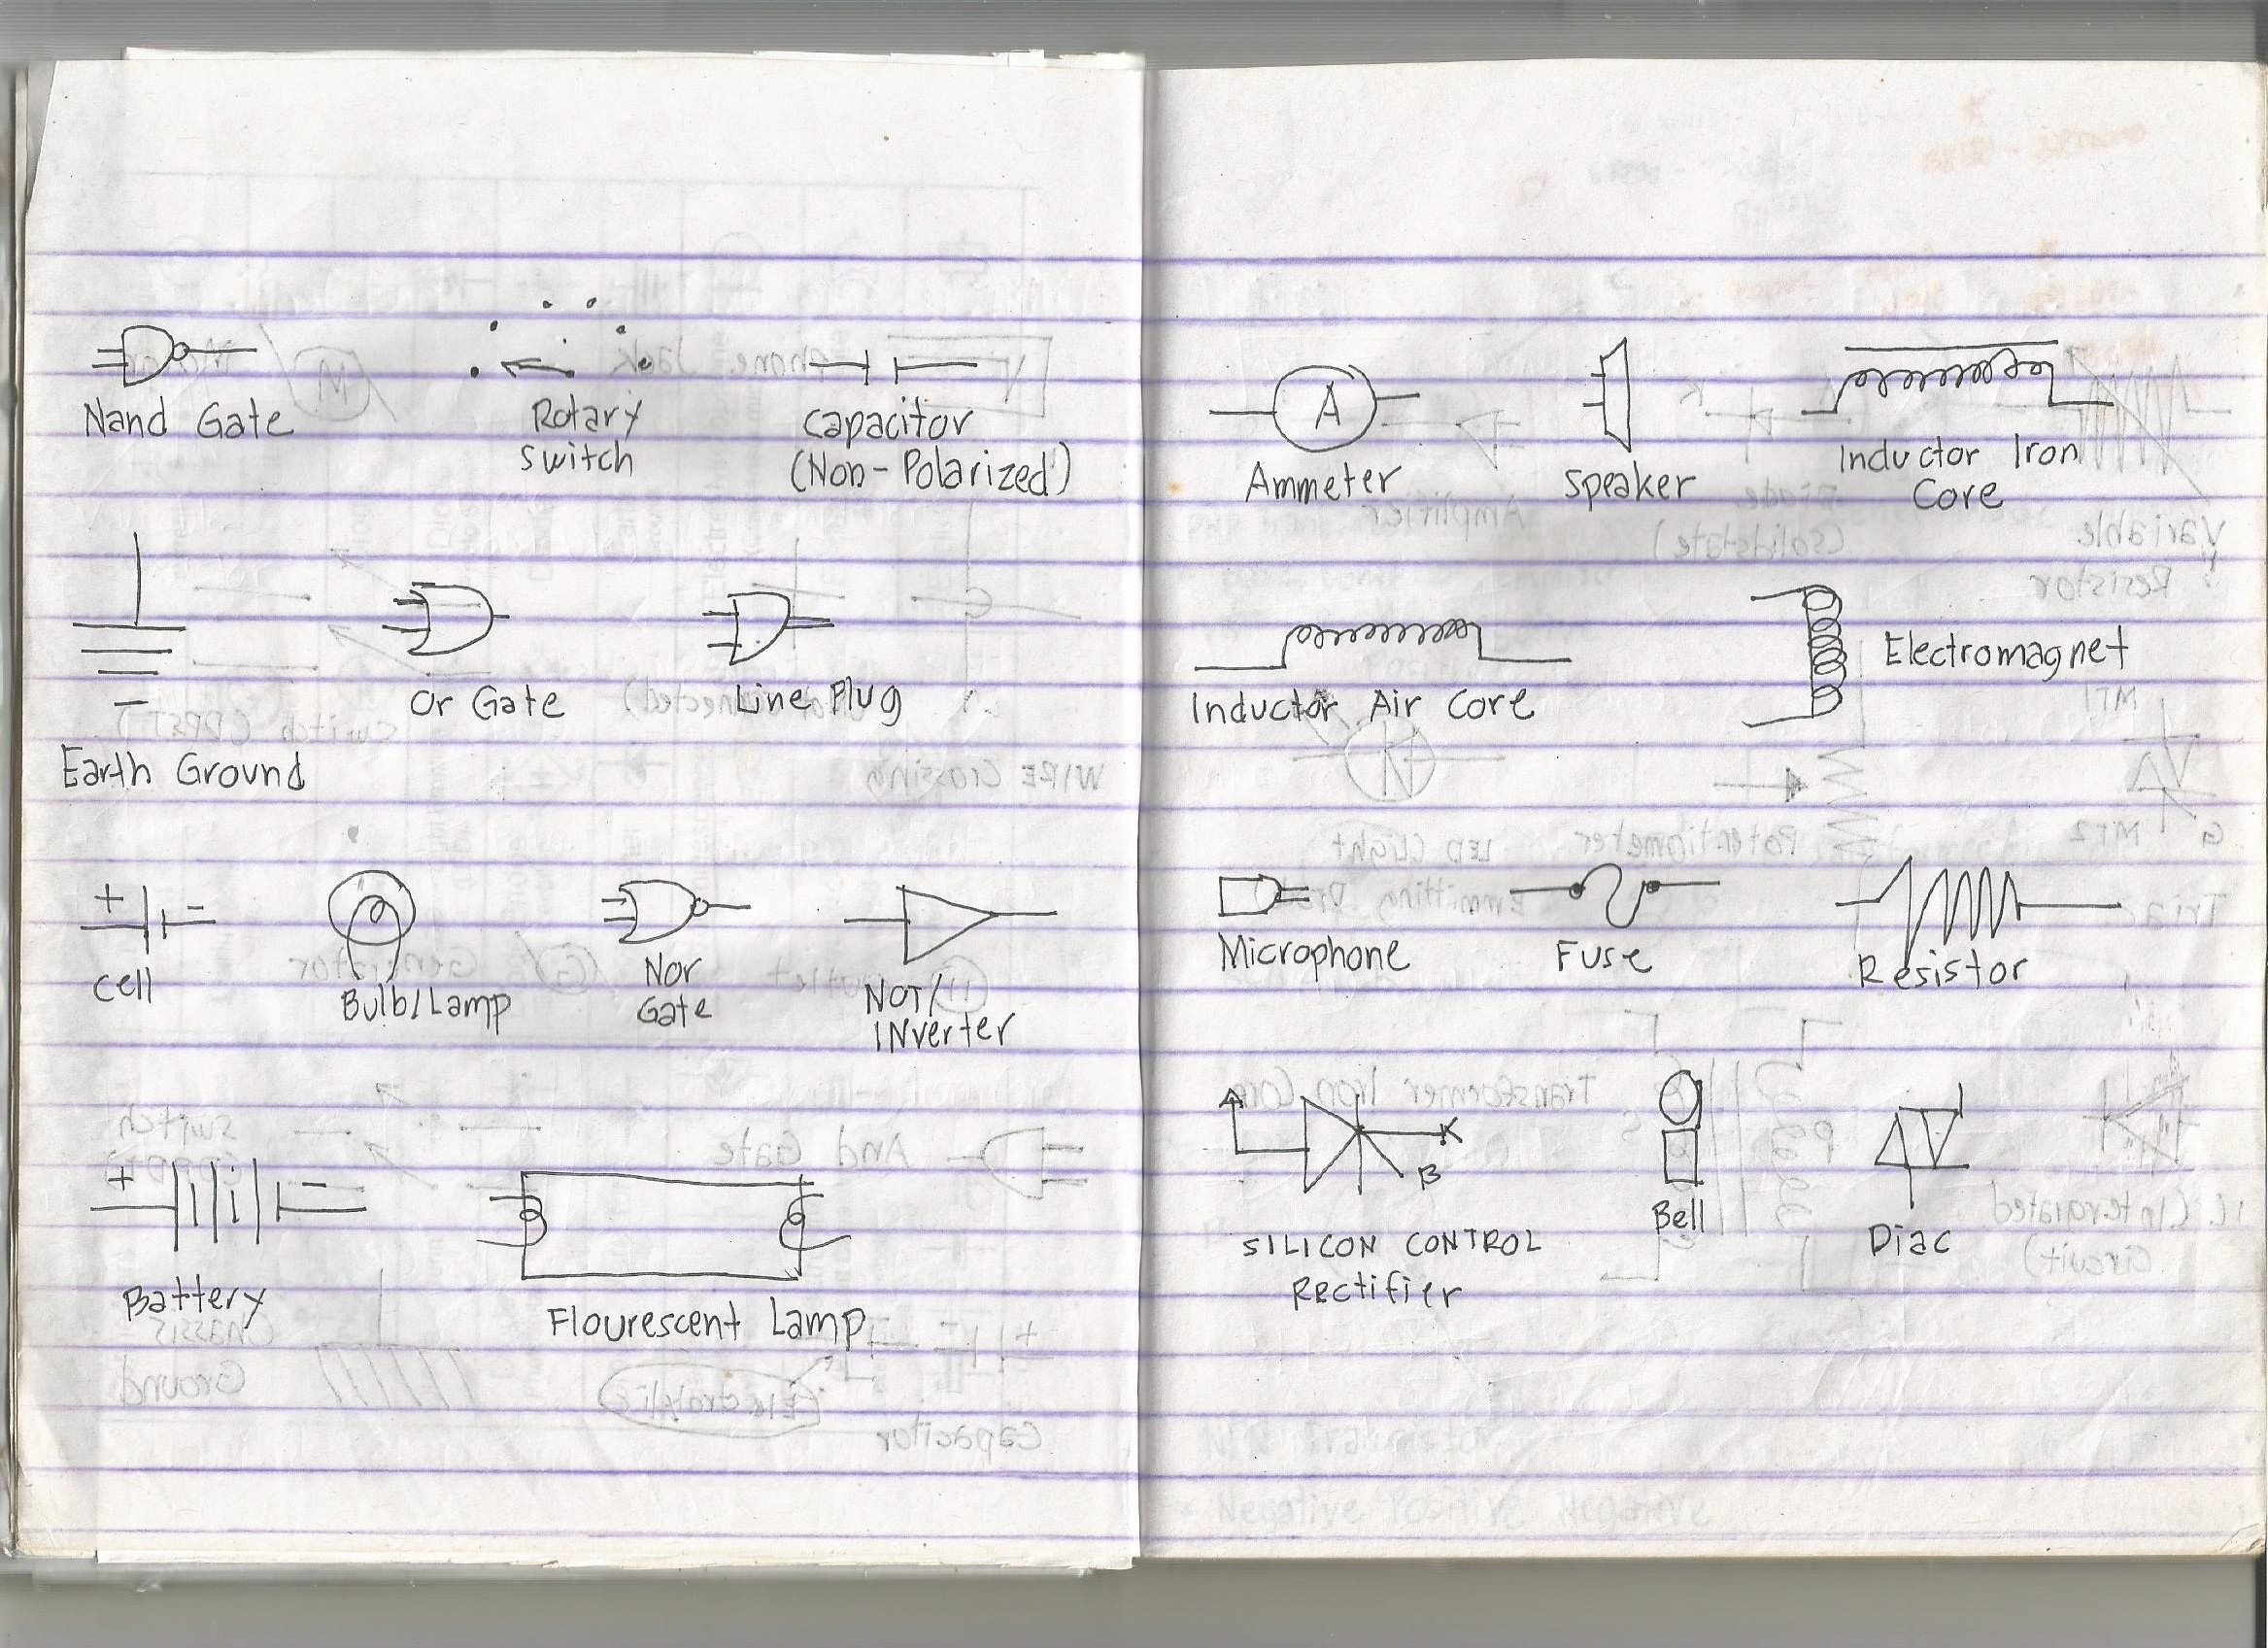 Nand Gate
Rotary
Switch
Capacitor
(Non-Polarized)
Earth Ground
Or Gate
Line Plug
+
-
Cell
Bulb/Lamp
Nor
Gate
NOT/
INverter
+
-
Battery
Flourescent Lamp
A
Ammeter
Speaker
Inductor Iron
Core
Inductor Air Core
Electromagnet
Microphone
Fuse
Resistor
K
B
SILICON CONTROL
Rectifier
Bell
Diac